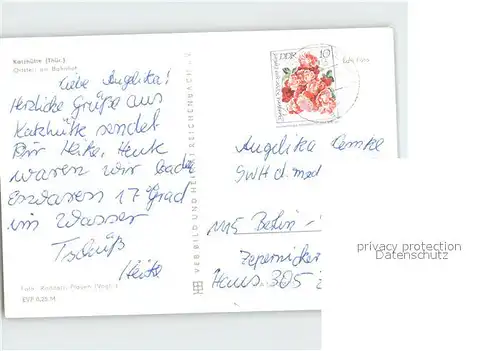 Katzhütte (Thür.)
Ortsteil am Bahnhof
Liebe Angelika!
Herzliche Grüße aus
Katzhütte sendet
Dir Heike. Heute
waren wir baden
Es waren 17 Grad
im Wasser
Tschüß
Heike
Foto: Plauen (Vogtl.)
EVP 0,25 M
VEB BILD UND HEIMAT REICHENBACH i. V.
DDR 10
Angelika Lemke
SWH d. med
1115 Berlin
Zepernicker
Haus 305
privacy protection
Datenschutz